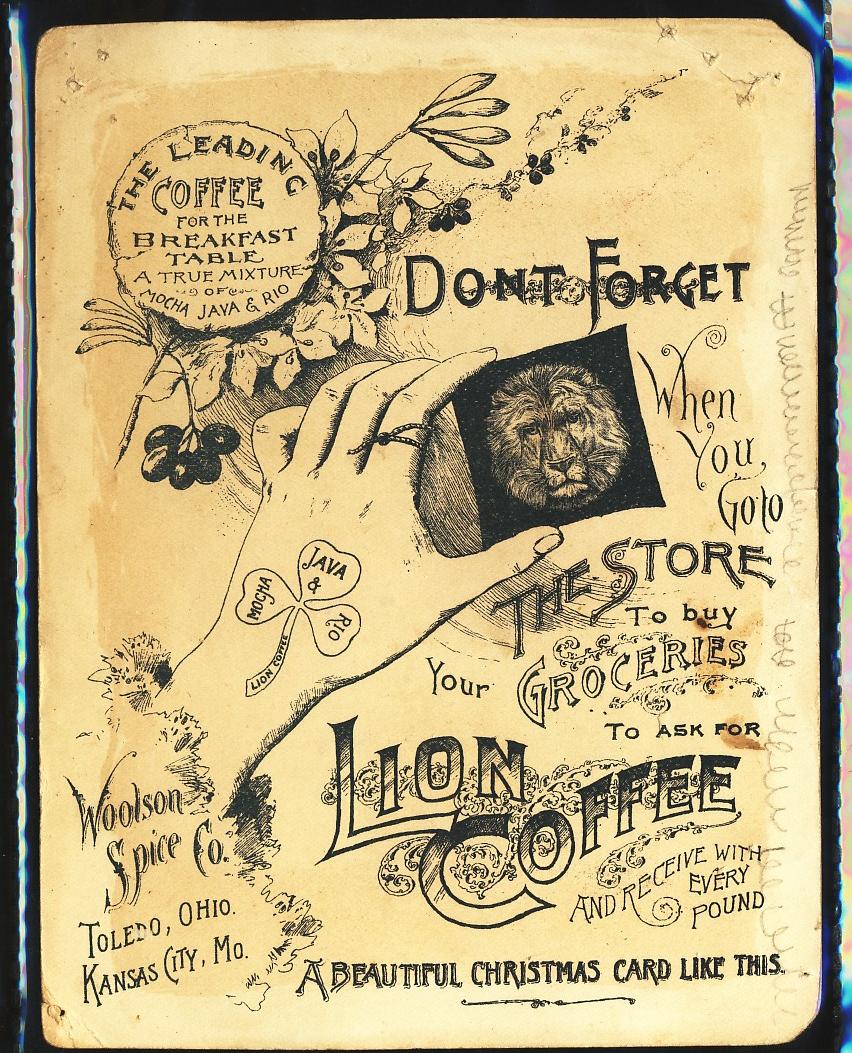 THE LEADING
COFFEE
FOR THE
BREAKFAST
TABLE
A TRUE MIXTURE
OF
MOCHA JAVA & RIO
DONT FORGET
When
You
Go to
THE STORE
To buy
Your GROCERIES
To ASK FOR
LION
COFFEE
AND RECEIVE WITH
EVERY
POUND
A BEAUTIFUL CHRISTMAS CARD LIKE THIS.
MOCHA
JAVA
&
RIO
LION COFFEE
Woolson
Spice Co.
TOLEDO, OHIO.
KANSAS CITY, Mo.